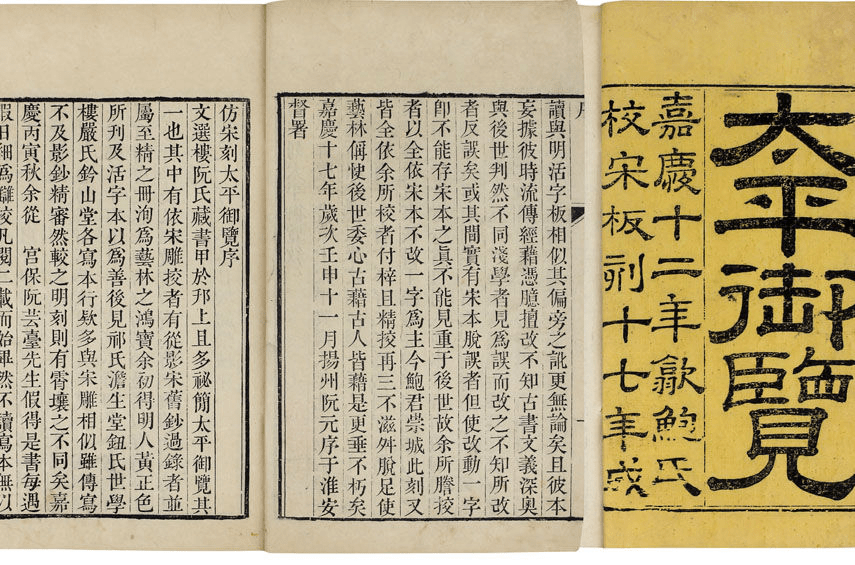 太平御覽
嘉慶十二年歙鮑氏
校宋板刻十七年成
讀與明活字板相似其偏旁之訛更無論矣且彼本
妄據彼時流傳經藉憑臆擅改不知古書文義深奧
與後世判然不同淺學者見爲誤而改之不知所改
者反誤矣或其間實有宋本脫誤者但使改動一字
卽不能存宋本之眞不能見重于後世故余所謄挍
者以全依宋本不改一字爲主今鮑君崇城此刻又
皆全依余所挍者付梓且精挍再三不滋舛脫足使
藝林偁快後世委心古藉古人皆藉是更垂不朽矣
嘉慶十七年歲次壬申十一月揚州阮元序于淮安
督署
仿宋刻太平御覽序
文選樓阮氏藏書甲於邗上且多祕簡太平御覽其
一也其中有依宋雕挍者有從影宋舊鈔過錄者並
屬至精之冊洵爲藝林之鴻寶余初得明人黃正色
所刊及活字本以爲善後見祁氏澹生堂鈕氏世學
樓嚴氏鈐山堂各寫本行欵多與宋雕相似雖傳寫
不及影鈔精審然較之明刻則有霄壤之不同矣嘉
慶丙寅秋余從 宮保阮芸臺先生假得是書每遇
暇日細爲讎挍凡閱二載而始畢然不讀寫本無以